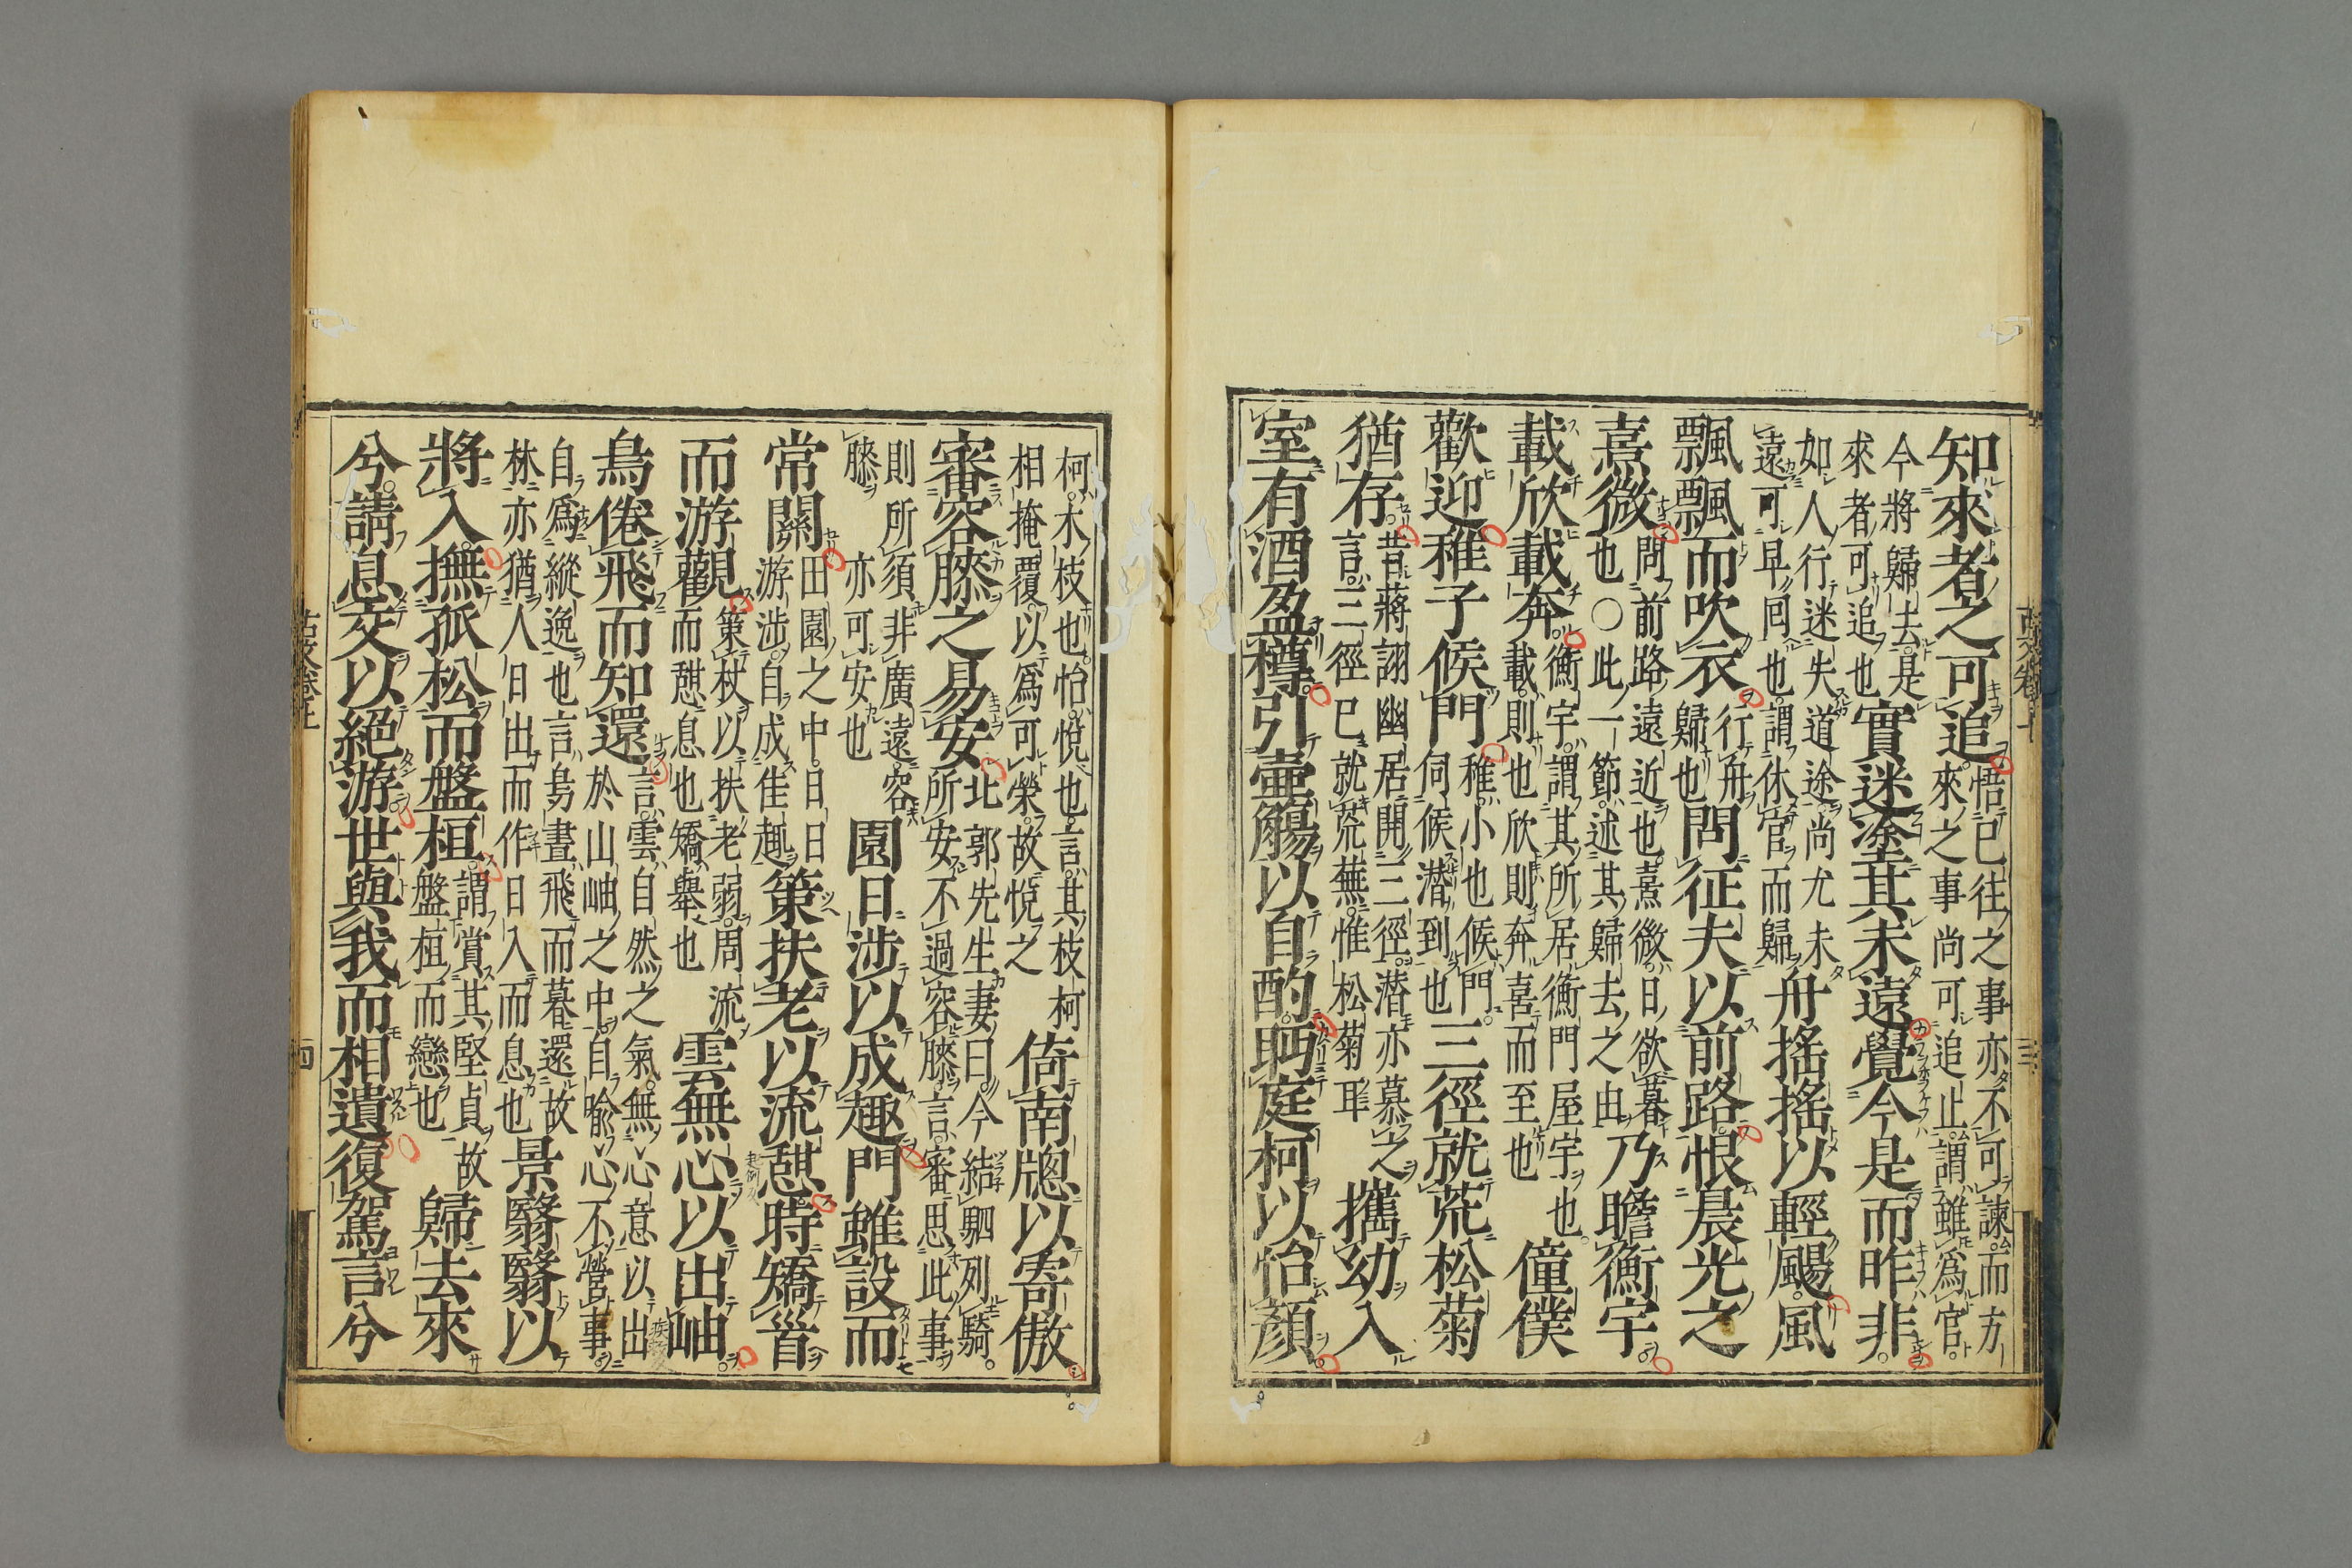 知來者之可追悟已往之事亦不可諫而方來之事尚可追止謂雖爲官
今將歸去是來者可追也實迷塗其未遠覺今是而昨非
如人行迷失道途尚尤未遠可早囘也謂休官而歸舟搖搖以輕颺風
飄飄而吹衣行舟歸也問征夫以前路恨晨光之
熹微問前路遠近也熹微日欲暮也○此一節述其歸去之由乃瞻衡宇
載欣載奔衡宇謂其所居衡門屋宇也載則也欣則奔喜而至也僮僕
歡迎稚子候門稚小也候門伺候潜到也三徑就荒松菊
猶存昔蔣詡幽居開三徑潜亦慕之言三徑已就荒蕪惟松菊耳攜幼入
室有酒盈樽引壷觴以自酌眄庭柯以怡顏
柯木枝也怡悅也言其枝柯相掩覆以爲可榮故悅之倚南牕以寄傲
審容膝之易安北郭先生妻曰今結駟列騎所安不過容膝言審思此事
則所須非廣遠容膝亦可安也園日涉以成趣門雖設而
常關田園之中日日游涉自成佳趣策扶老以流憩時矯首
而游觀策杖以扶老弱周流而憩息也矯舉也雲無心以出岫
鳥倦飛而知還言雲自然之氣無心意以出於山岫之中自喻心不營事
自爲縱逸也言鳥晝飛而暮還故林亦猶人日出而作日入而息也景翳翳以
將入撫孤松而盤桓謂賞其堅貞故盤桓而戀也歸去來
兮請息交以絕游世與我而相遺復駕言兮